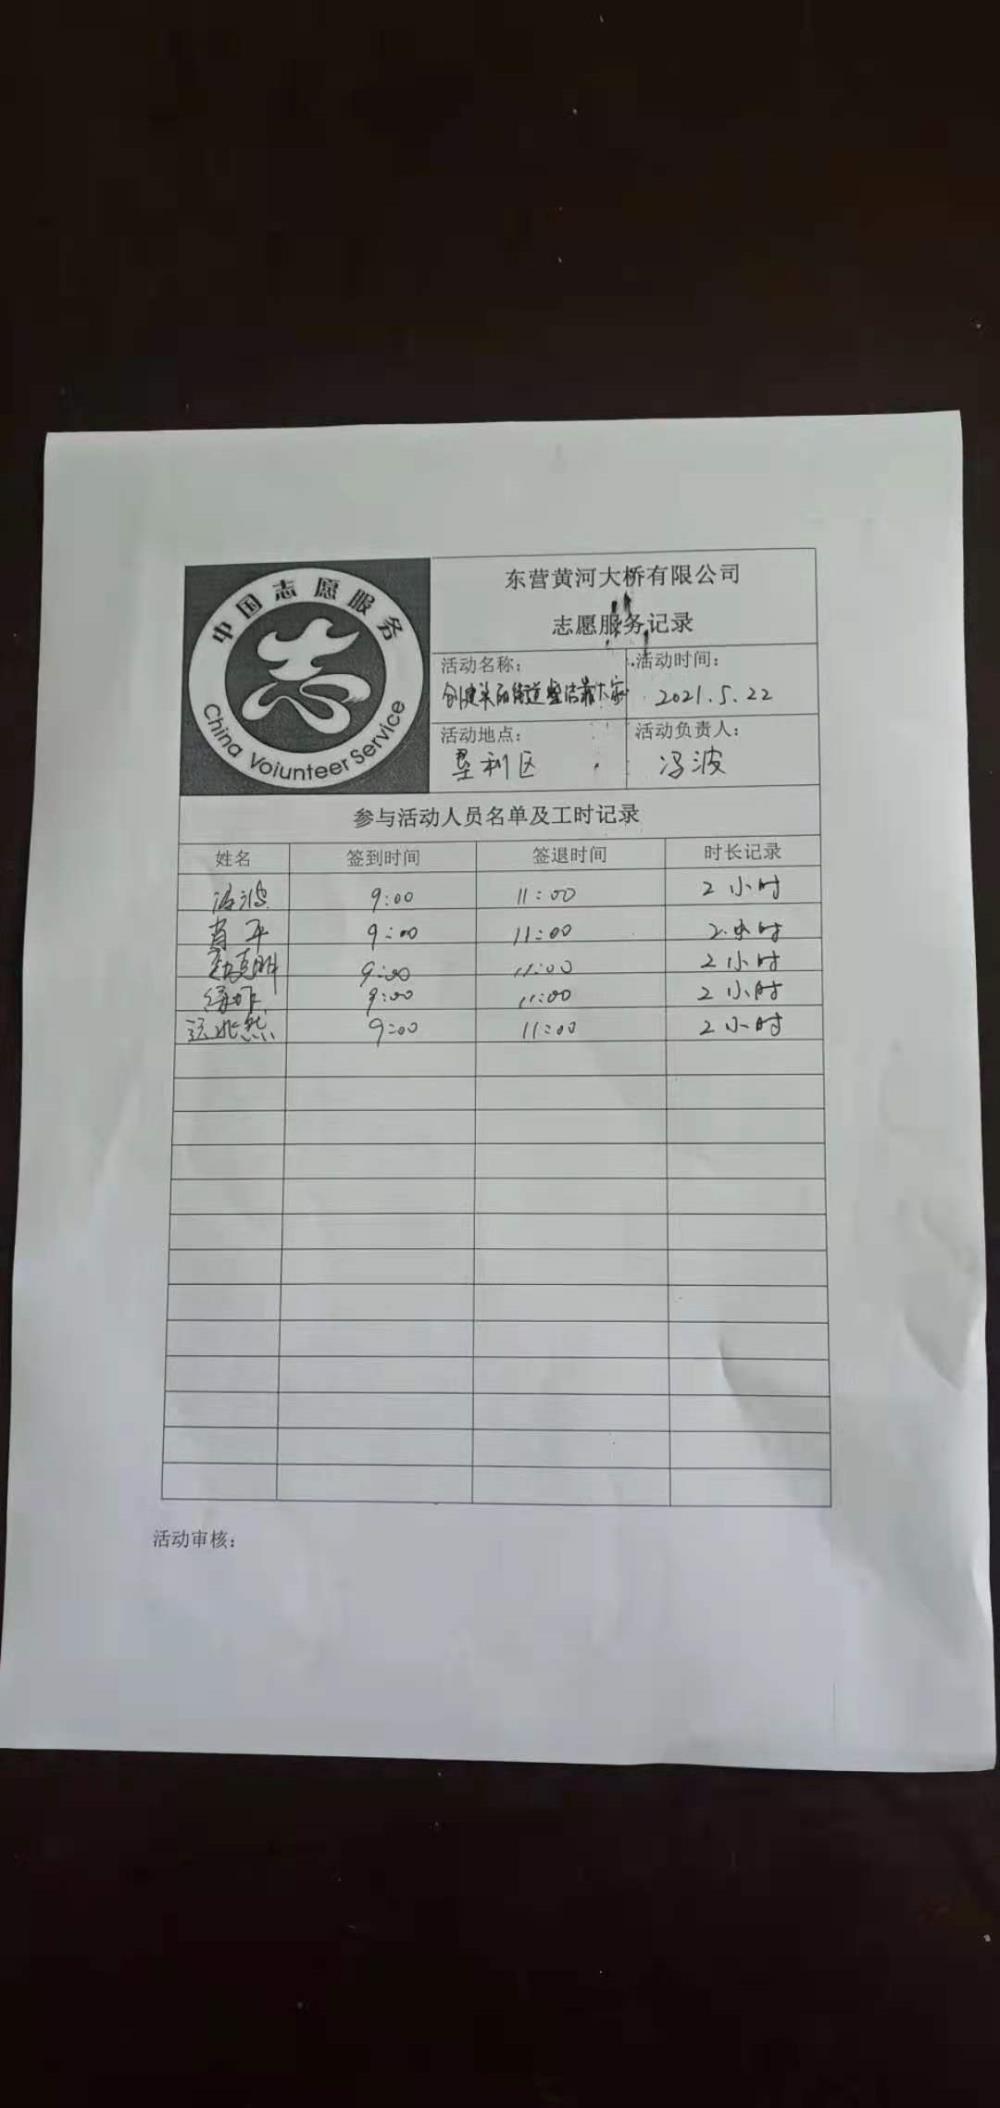 中国志愿服务
志
China Voiunteer Service
东营黄河大桥有限公司
志愿服务记录
活动名称：
活动时间：
2021.5.22
活动地点：
活动负责人：
垦利区
冯波
参与活动人员名单及工时记录
姓名 签到时间 签退时间 时长记录
冯波 9:00 11:00 2小时
肖平 9:00 11:00 2小时
9:00 11:00 2小时
9:00 11:00 2小时
9:00 11:00 2小时
活动审核：